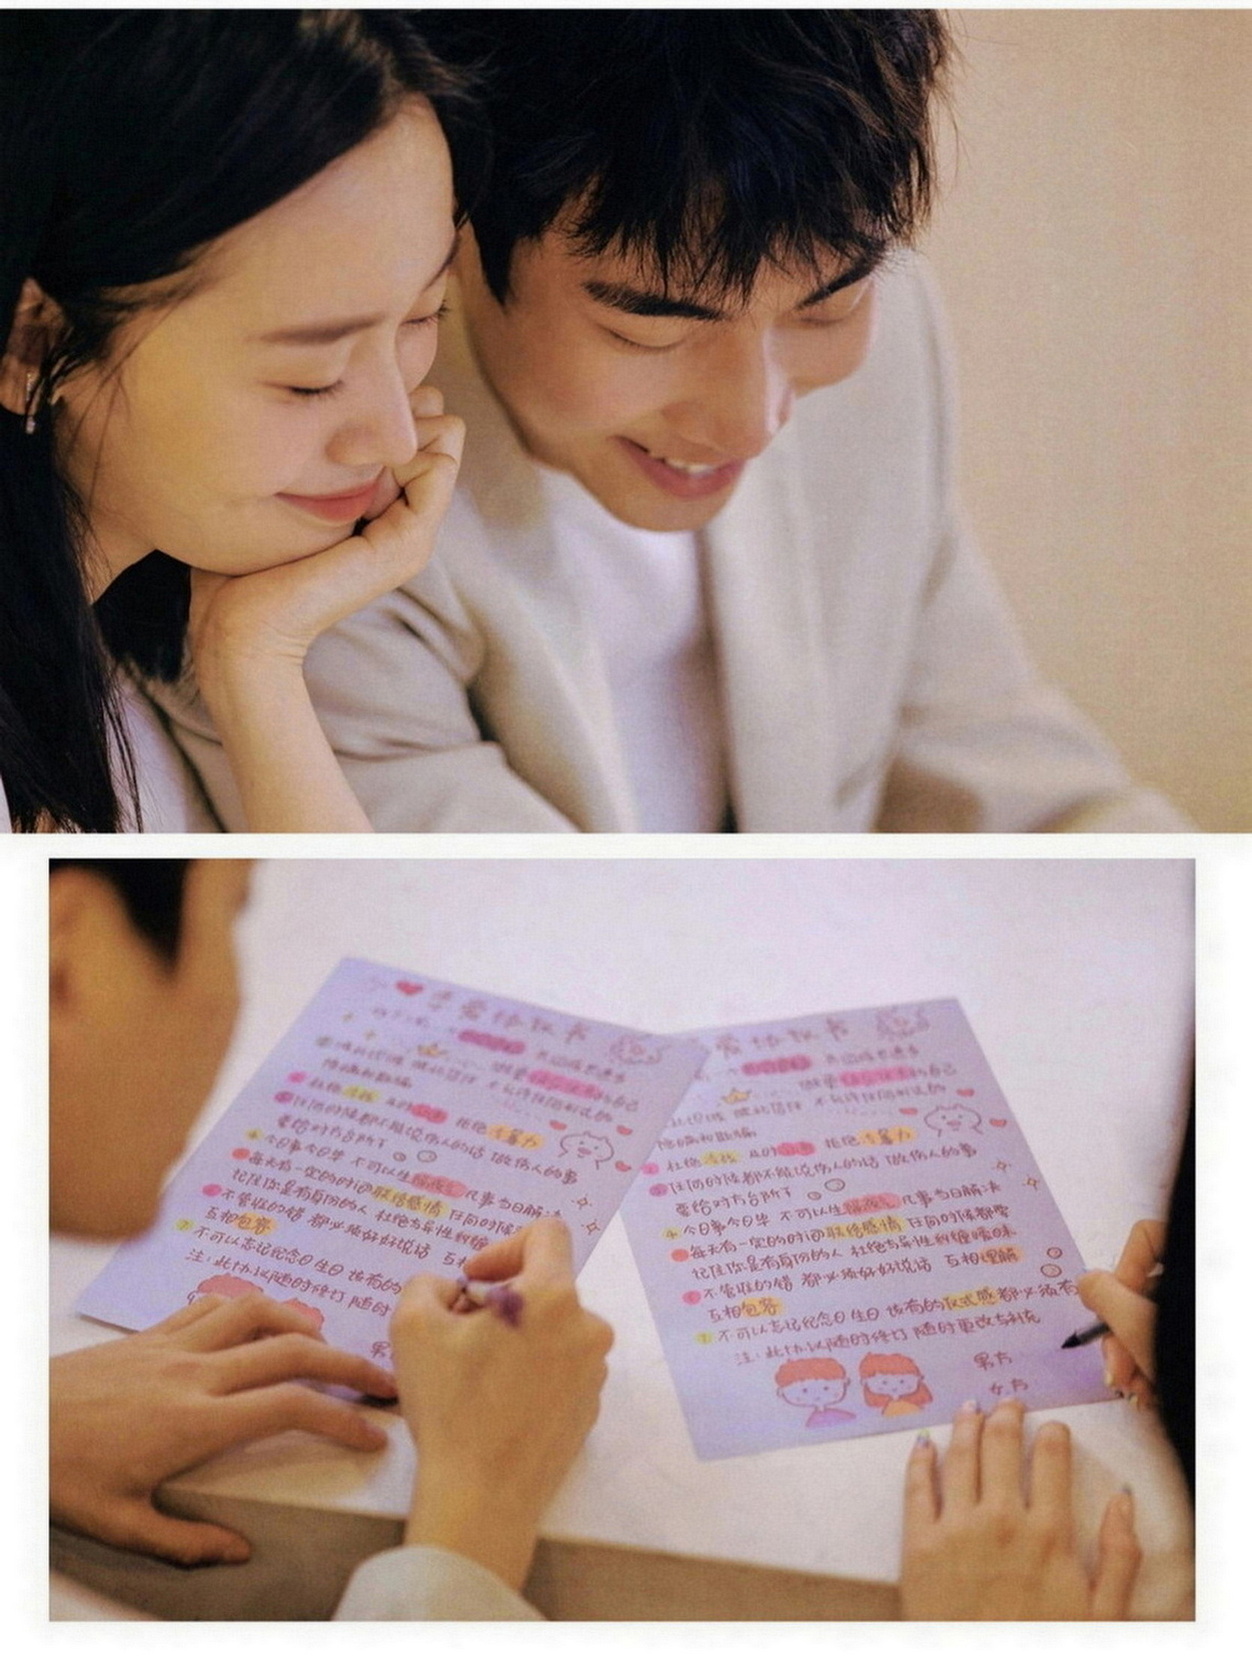 恋爱协议书
彼此坦诚 彼此信任 不允许任何形式的
隐瞒和欺骗
杜绝冷战 及时沟通 拒绝冷暴力
任何时候都不能说伤人的话 做伤人的事
要给对方台阶下
今日事今日毕 不可以生隔夜气
每天有一定的时间联络感情 任何时候
记住你是有身份的人 杜绝与异性纠缠
不管谁的错 都必须好好说话
互相包容
不可以忘记纪念日生日 该有的
注:此协议随时修订 随时
男
爱协议书
做更
不允许任何形式的
隐瞒和欺骗
杜绝冷战 及时沟通 拒绝冷暴力
任何时候都不能说伤人的话 做伤人的事
要给对方台阶下
4 今日事今日毕 不可以生隔夜气 凡事当日解决
每天有一定的时间联络感情 任何时候都要
记住你是有身份的人 杜绝与异性纠缠暧昧
不管谁的错 都必须好好说话 互相理解
互相包容
7 不可以忘记纪念日生日 该有的仪式感都必须有
注:此协议随时修订 随时更改与补充
男方
女方